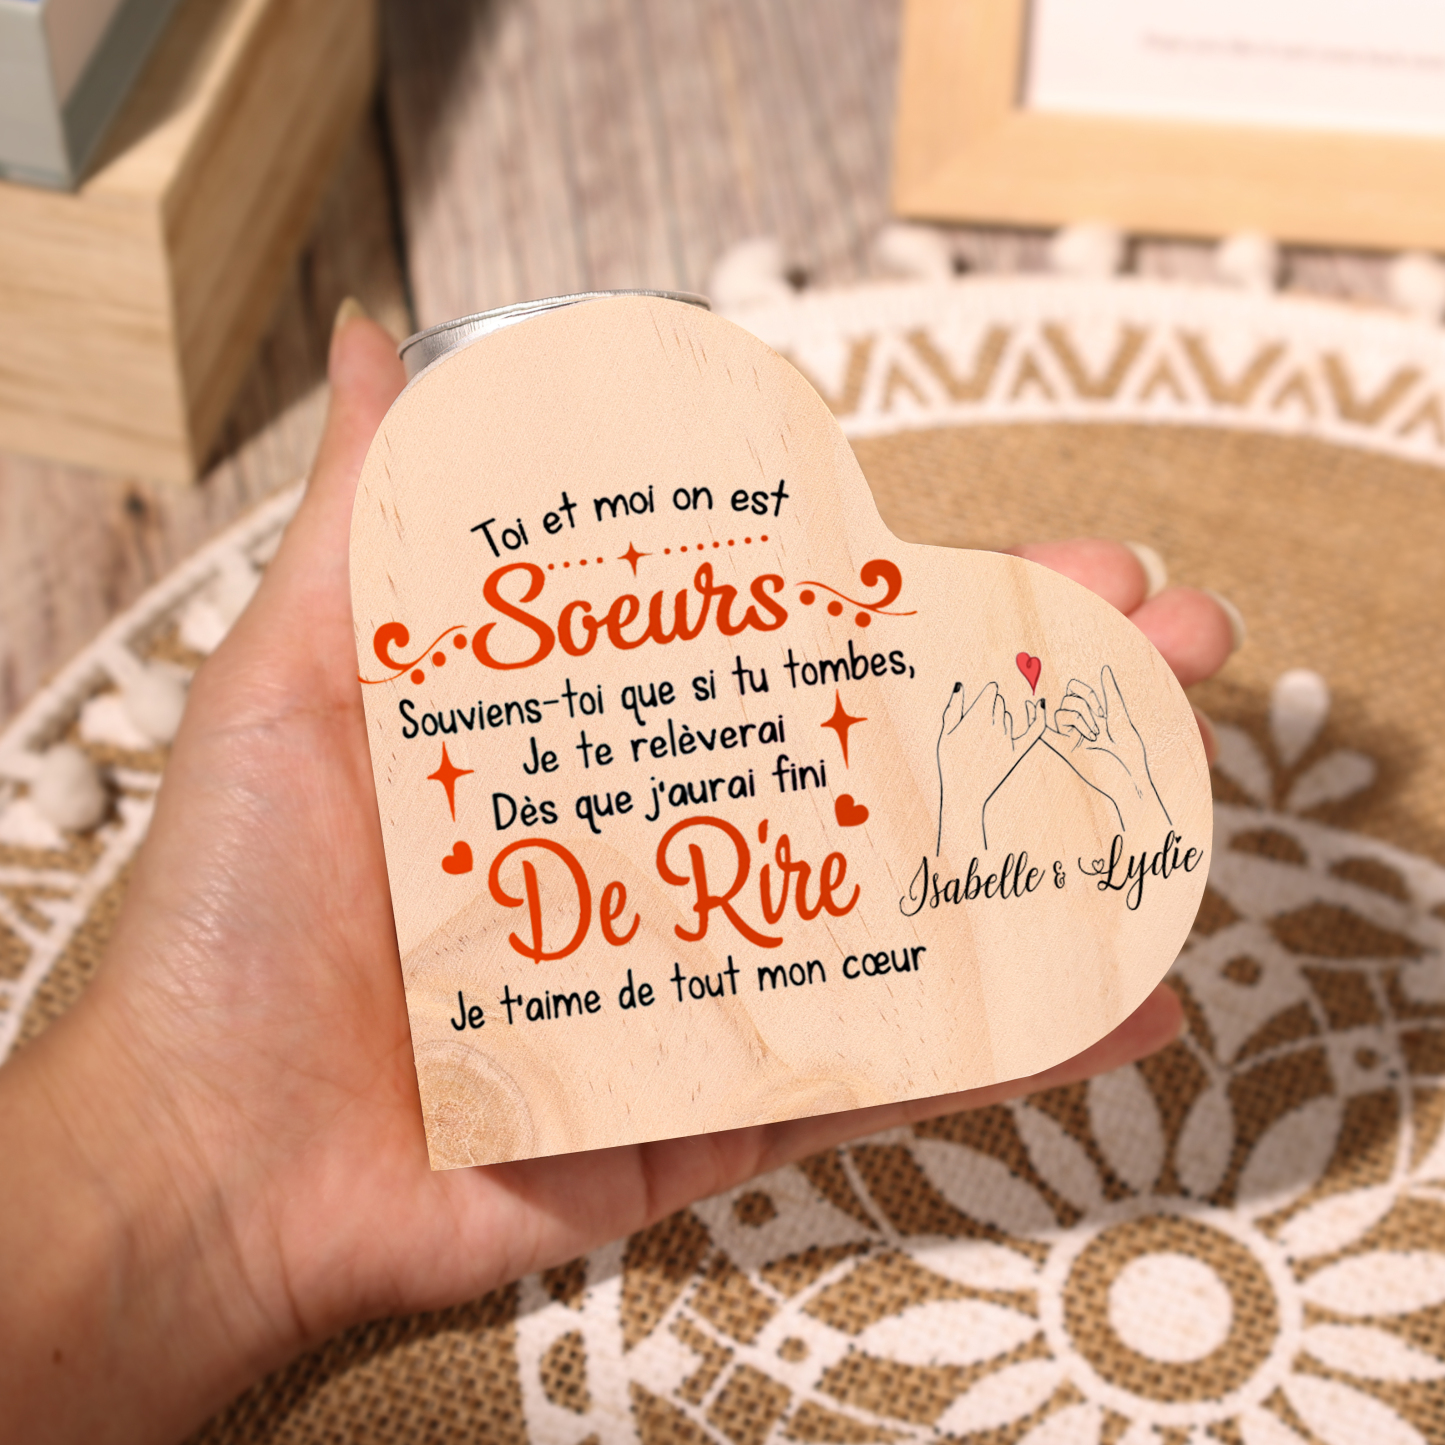 Toi et moi on est
Soeurs
Souviens-toi que si tu tombes,
Je te relèverai
Dès que j'aurai fini
De Rire
Je t'aime de tout mon cœur
Isabelle & Lydie